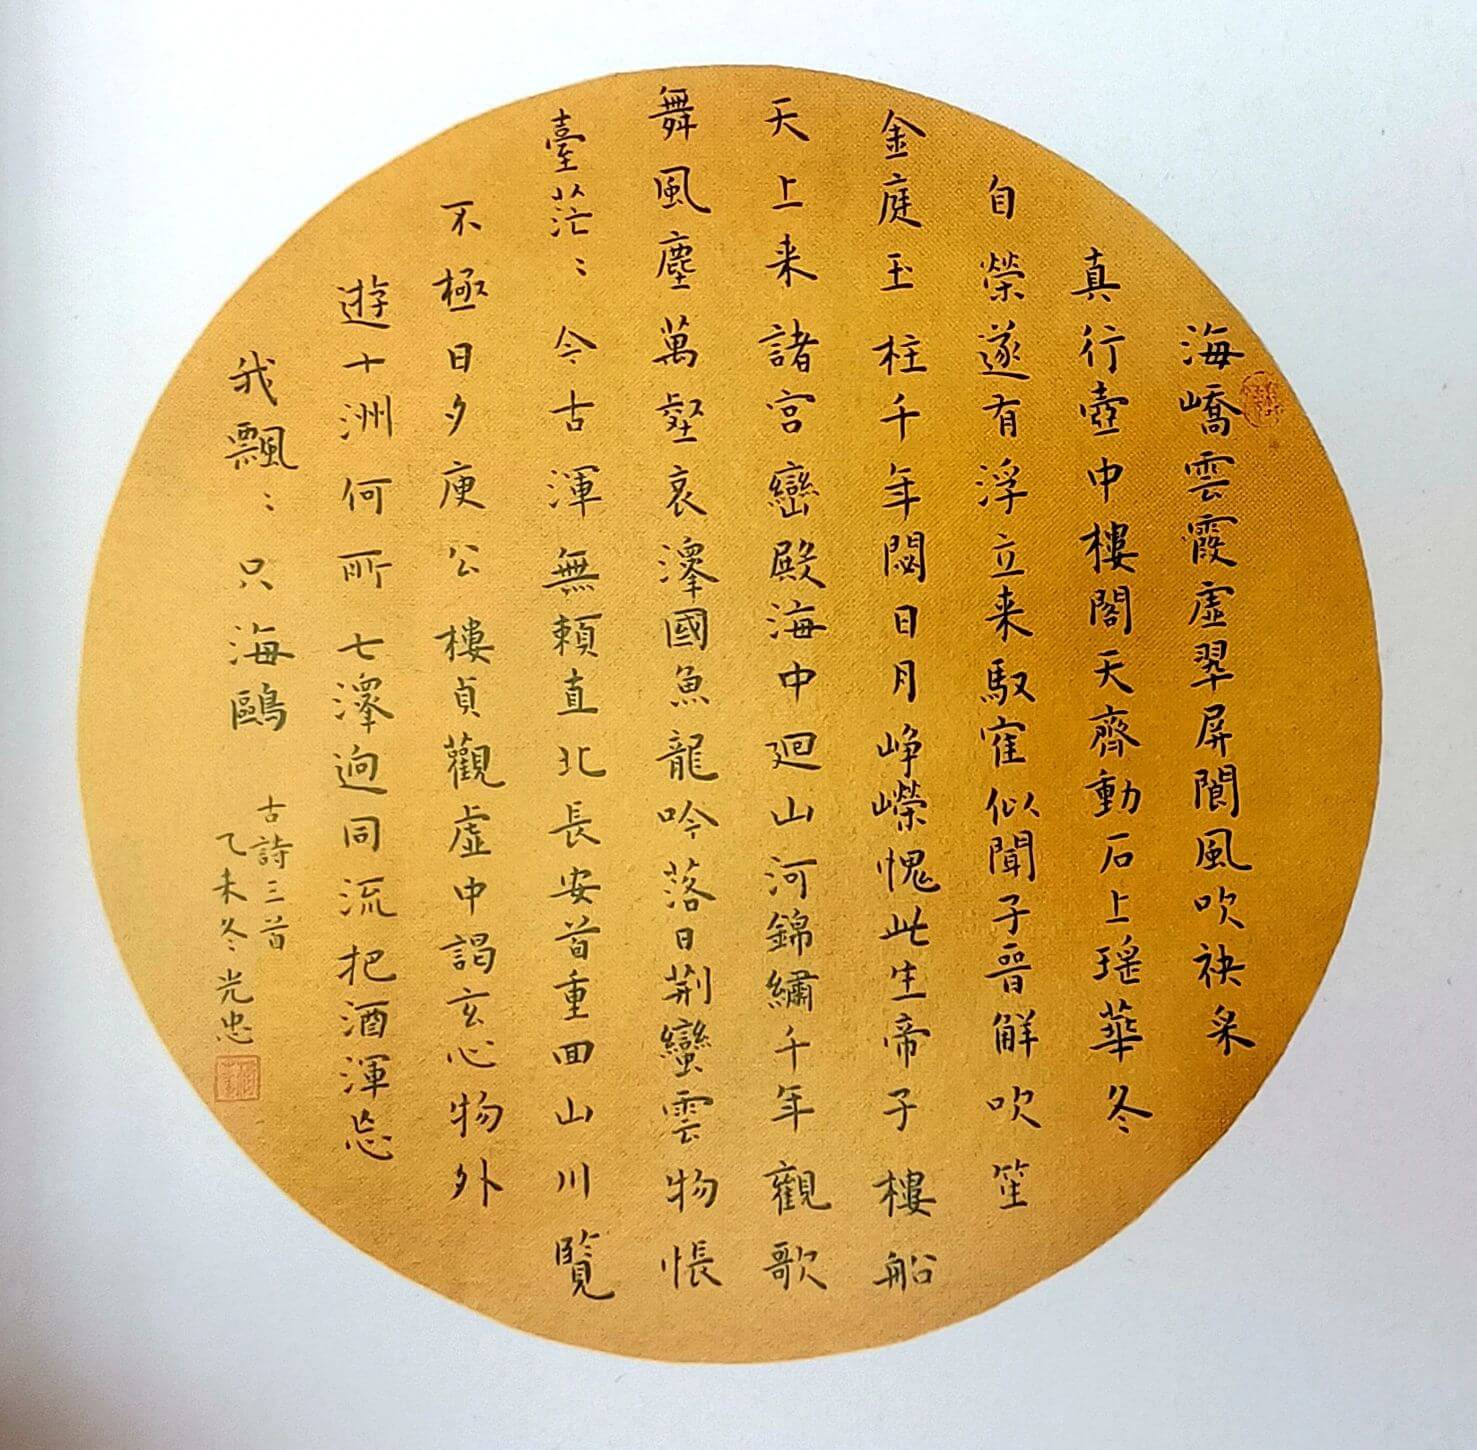 海嶠雲霞虛翠屏閬風吹袂采
真行壺中樓閣天齊動石上瑤華冬
自榮遂有浮立来馭寉似聞子晉解吹笙
金庭玉柱千年閟日月崢嶸愧此生帝子樓船
天上来諸宮巒殿海中廻山河錦繡千年觀歌
舞風塵萬壑哀澤國魚龍吟落日荆蠻雲物悵
臺茫〻今古渾無賴直北長安首重回山川覽
不極日夕庾公樓貞觀虛中謁玄心物外
遊十洲何所七澤逈同流把酒渾忘
我飄〻只海鷗
古詩三首
乙未冬光忠